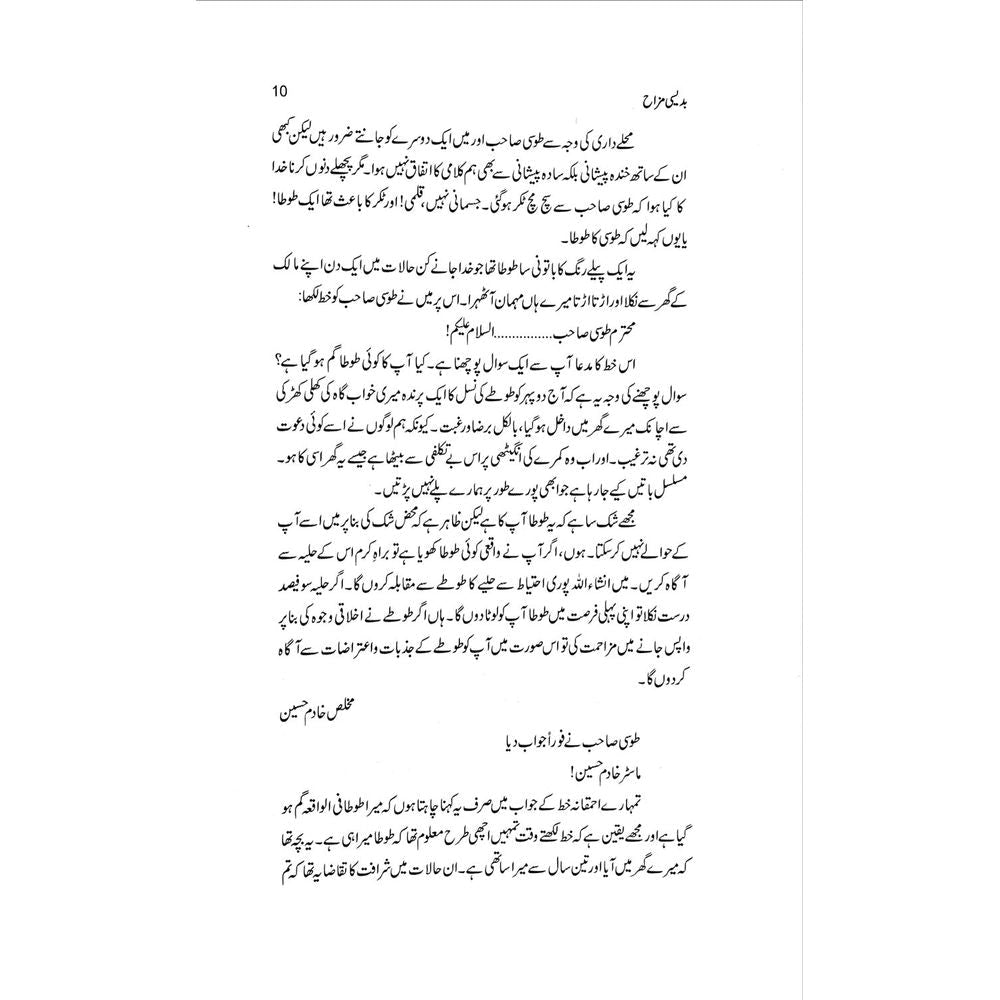 بدیسی مزاح
10
محلے داری کی وجہ سے طوسی صاحب اور میں ایک دوسرے کو جانتے ضرور ہیں لیکن کبھی
ان کے ساتھ خندہ پیشانی بلکہ سادہ پیشانی سے بھی ہم کلامی کا اتفاق نہیں ہوا۔ مگر پچھلے دنوں کرنا خدا
کا کیا ہوا کہ طوسی صاحب سے سچ مچ ٹکر ہو گئی۔ جسمانی نہیں، قلمی! اور ٹکر کا باعث تھا ایک طوطا!
یا یوں کہہ لیں کہ طوسی کا طوطا۔
یہ ایک پیلے رنگ کا باتونی سا طوطا تھا جو خدا جانے کن حالات میں ایک دن اپنے مالک
کے گھر سے نکلا اور اڑتا اڑتا میرے ہاں مہمان آ ٹھہرا۔ اس پر میں نے طوسی صاحب کو خط لکھا:
محترم طوسی صاحب................السلام علیکم!
اس خط کا مدعا آپ سے ایک سوال پوچھنا ہے۔ کیا آپ کا کوئی طوطا گم ہو گیا ہے؟
سوال پوچھنے کی وجہ یہ ہے کہ آج دوپہر کو طوطے کی نسل کا ایک پرندہ میری خواب گاہ کی کھلی کھڑکی
سے اچانک میرے گھر میں داخل ہو گیا، بالکل برضا ورغبت۔ کیونکہ ہم لوگوں نے اسے کوئی دعوت
دی تھی نہ ترغیب۔ اور اب وہ کمرے کی انگیٹھی پر اس بے تکلفی سے بیٹھا ہے جیسے یہ گھر اسی کا ہو۔
مسلسل باتیں کیے جا رہا ہے جو ابھی پورے طور پر ہمارے پلے نہیں پڑتیں۔
مجھے شک سا ہے کہ یہ طوطا آپ کا ہے لیکن ظاہر ہے کہ محض شک کی بنا پر میں اسے آپ
کے حوالے نہیں کر سکتا۔ ہوں، اگر آپ نے واقعی کوئی طوطا کھویا ہے تو براہِ کرم اس کے حلیہ سے
آگاہ کریں۔ میں انشاء اللہ پوری احتیاط سے حلیے کا طوطے سے مقابلہ کروں گا۔ اگر حلیہ سو فیصد
درست نکلا تو اپنی پہلی فرصت میں طوطا آپ کو لوٹا دوں گا۔ ہاں اگر طوطے نے اخلاقی وجوہ کی بنا پر
واپس جانے میں مزاحمت کی تو اس صورت میں آپ کو طوطے کے جذبات واعتراضات سے آگاہ
کر دوں گا۔
مخلص خادم حسین
طوسی صاحب نے فوراً جواب دیا
ماسٹر خادم حسین!
تمہارے احمقانہ خط کے جواب میں صرف یہ کہنا چاہتا ہوں کہ میرا طوطا فی الواقعہ گم ہو
گیا ہے اور مجھے یقین ہے کہ خط لکھتے وقت تمہیں اچھی طرح معلوم تھا کہ طوطا میرا ہی ہے۔ یہ بچہ تھا
کہ میرے گھر میں آیا اور تین سال سے میرا ساتھی ہے۔ ان حالات میں شرافت کا تقاضا یہ تھا کہ تم